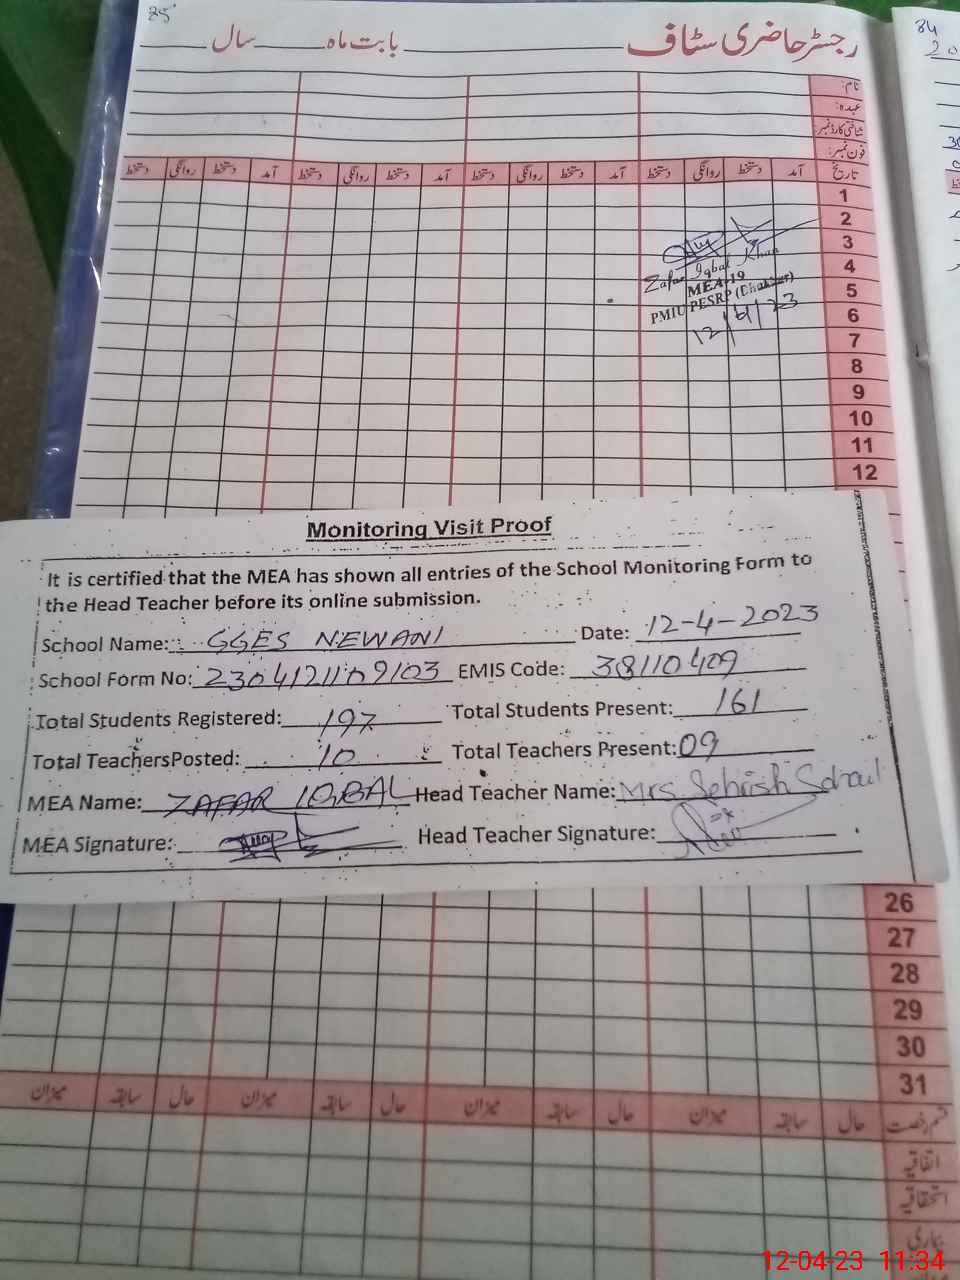 85
رجسٹر حاضری سٹاف ــــــ بابت ماہ ــــــ سال ــــــ
نام:
عہدہ:
شناختی کارڈ نمبر:
فون نمبر:
تاریخ آمد دستخط روانگی دستخط آمد دستخط روانگی دستخط آمد دستخط روانگی دستخط آمد دستخط روانگی دستخط
1
2
3
4
5
6
7
8
9
10
11
12
Zafar Iqbal Khan
MEA-19
PMIU PESRP (Bhakkar)
12/4/23
Monitoring Visit Proof
It is certified that the MEA has shown all entries of the School Monitoring Form to
the Head Teacher before its online submission.
School Name: GGES NEWANI Date: 12-4-2023
School Form No: 2304121109103 EMIS Code: 38110409
Total Students Registered: 197 Total Students Present: 161
Total TeachersPosted: 10 Total Teachers Present: 09
MEA Name: ZAFAR IQBAL Head Teacher Name: Mrs Sehrish Sohail
MEA Signature: Head Teacher Signature:
26
27
28
29
30
31
قسم رخصت حال سابقہ میزان حال سابقہ میزان حال سابقہ میزان حال سابقہ میزان
اتفاقیہ
استحقاقیہ
بیماری
84
12-04-23 11:34